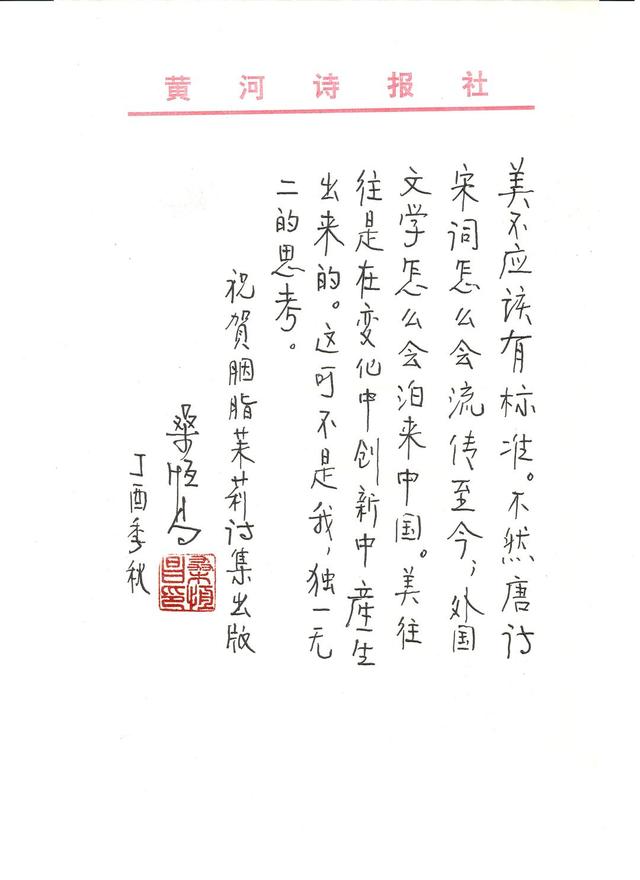 黄河诗报社
美不应该有标准。不然唐诗
宋词怎么会流传至今；外国
文学怎么会泊来中国。美往
往是在变化中创新中産生
出来的。这可不是我，独一无
二的思考。
祝賀胭脂茉莉诗集出版
桑恒昌
丁酉季秋
桑恒昌印